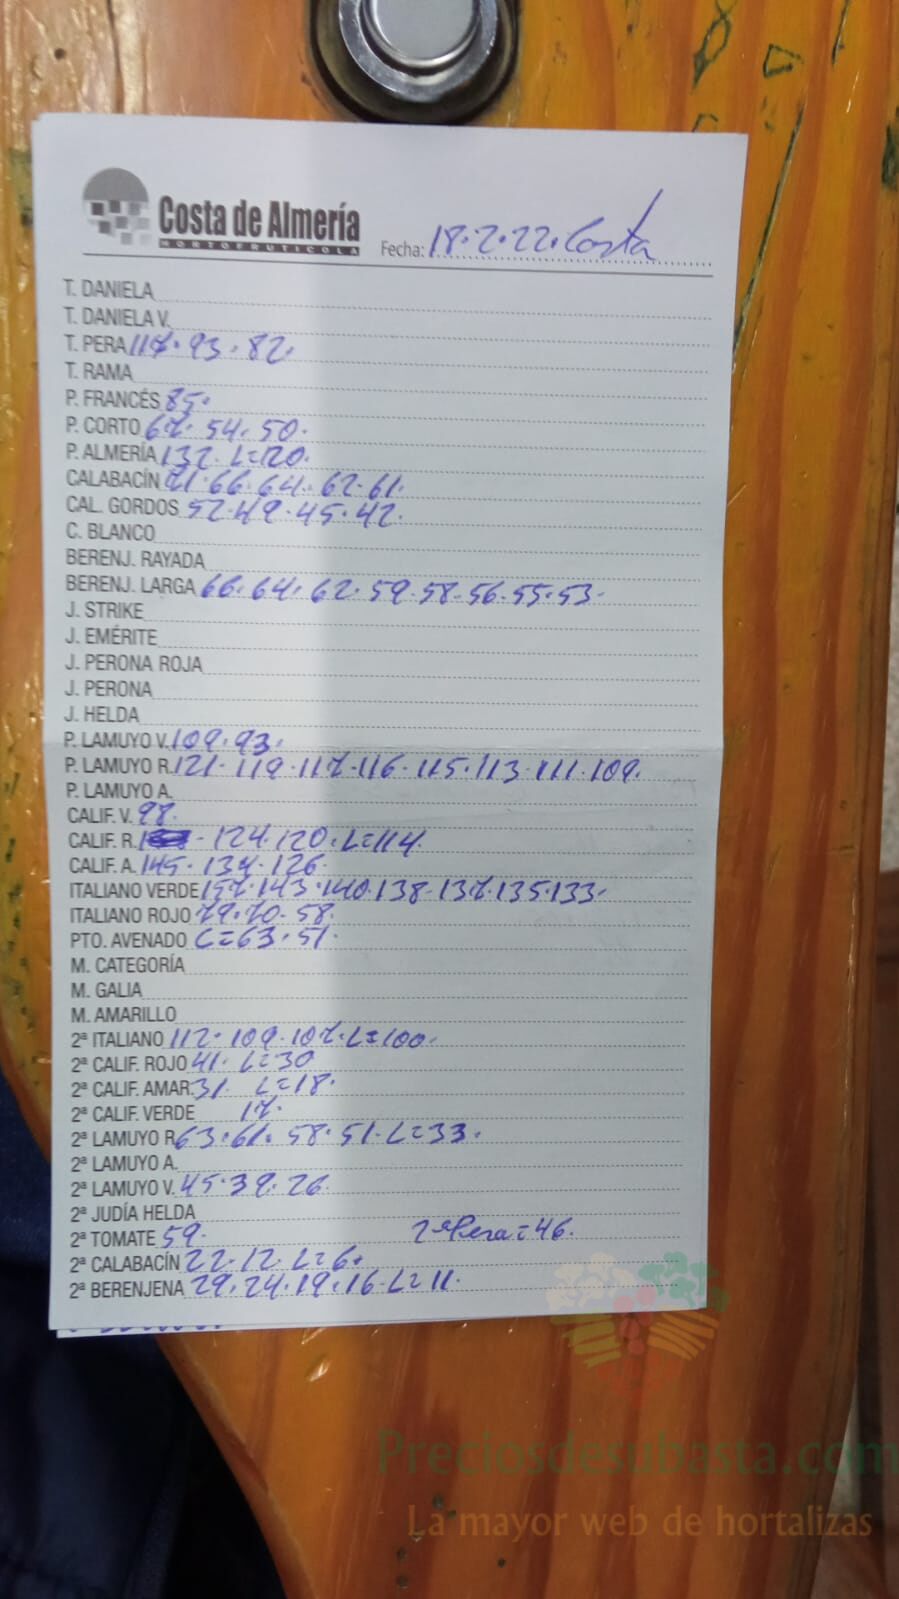 Costa de Almería
HORTOFRUTICOLA
Fecha: 18.2.22. Costa
T. DANIELA
T. DANIELA V.
T. PERA 117. 93. 82.
T. RAMA
P. FRANCÉS 85.
P. CORTO 67. 54. 50.
P. ALMERÍA 132. L=120.
CALABACÍN 71. 66. 64. 62. 61.
CAL. GORDOS 52. 49. 45. 42.
C. BLANCO
BERENJ. RAYADA
BERENJ. LARGA 66. 64. 62. 59. 58. 56. 55. 53.
J. STRIKE
J. EMÉRITE
J. PERONA ROJA
J. PERONA
J. HELDA
P. LAMUYO V. 109. 93.
P. LAMUYO R. 121. 119. 117. 116. 115. 113. 111. 109.
P. LAMUYO A.
CALIF. V. 98.
CALIF. R. - 124. 120. L=114.
CALIF. A. 145. 137. 126
ITALIANO VERDE 157. 143. 140. 138. 137. 135. 133.
ITALIANO ROJO 79. 70. 58.
PTO. AVENADO L=63. 51.
M. CATEGORÍA
M. GALIA
M. AMARILLO
2ª ITALIANO 112. 109. 107. L=100.
2ª CALIF. ROJO 41. L=30
2ª CALIF. AMAR. 31. L=18.
2ª CALIF. VERDE 17.
2ª LAMUYO R. 63. 61. 58. 51. L=33.
2ª LAMUYO A.
2ª LAMUYO V. 45. 39. 26
2ª JUDÍA HELDA
2ª TOMATE 59. 2ª Pera = 46.
2ª CALABACÍN 22. 12. L=6.
2ª BERENJENA 29. 24. 19. 16. L=11.
Preciosdesubasta.com
La mayor web de hortalizas